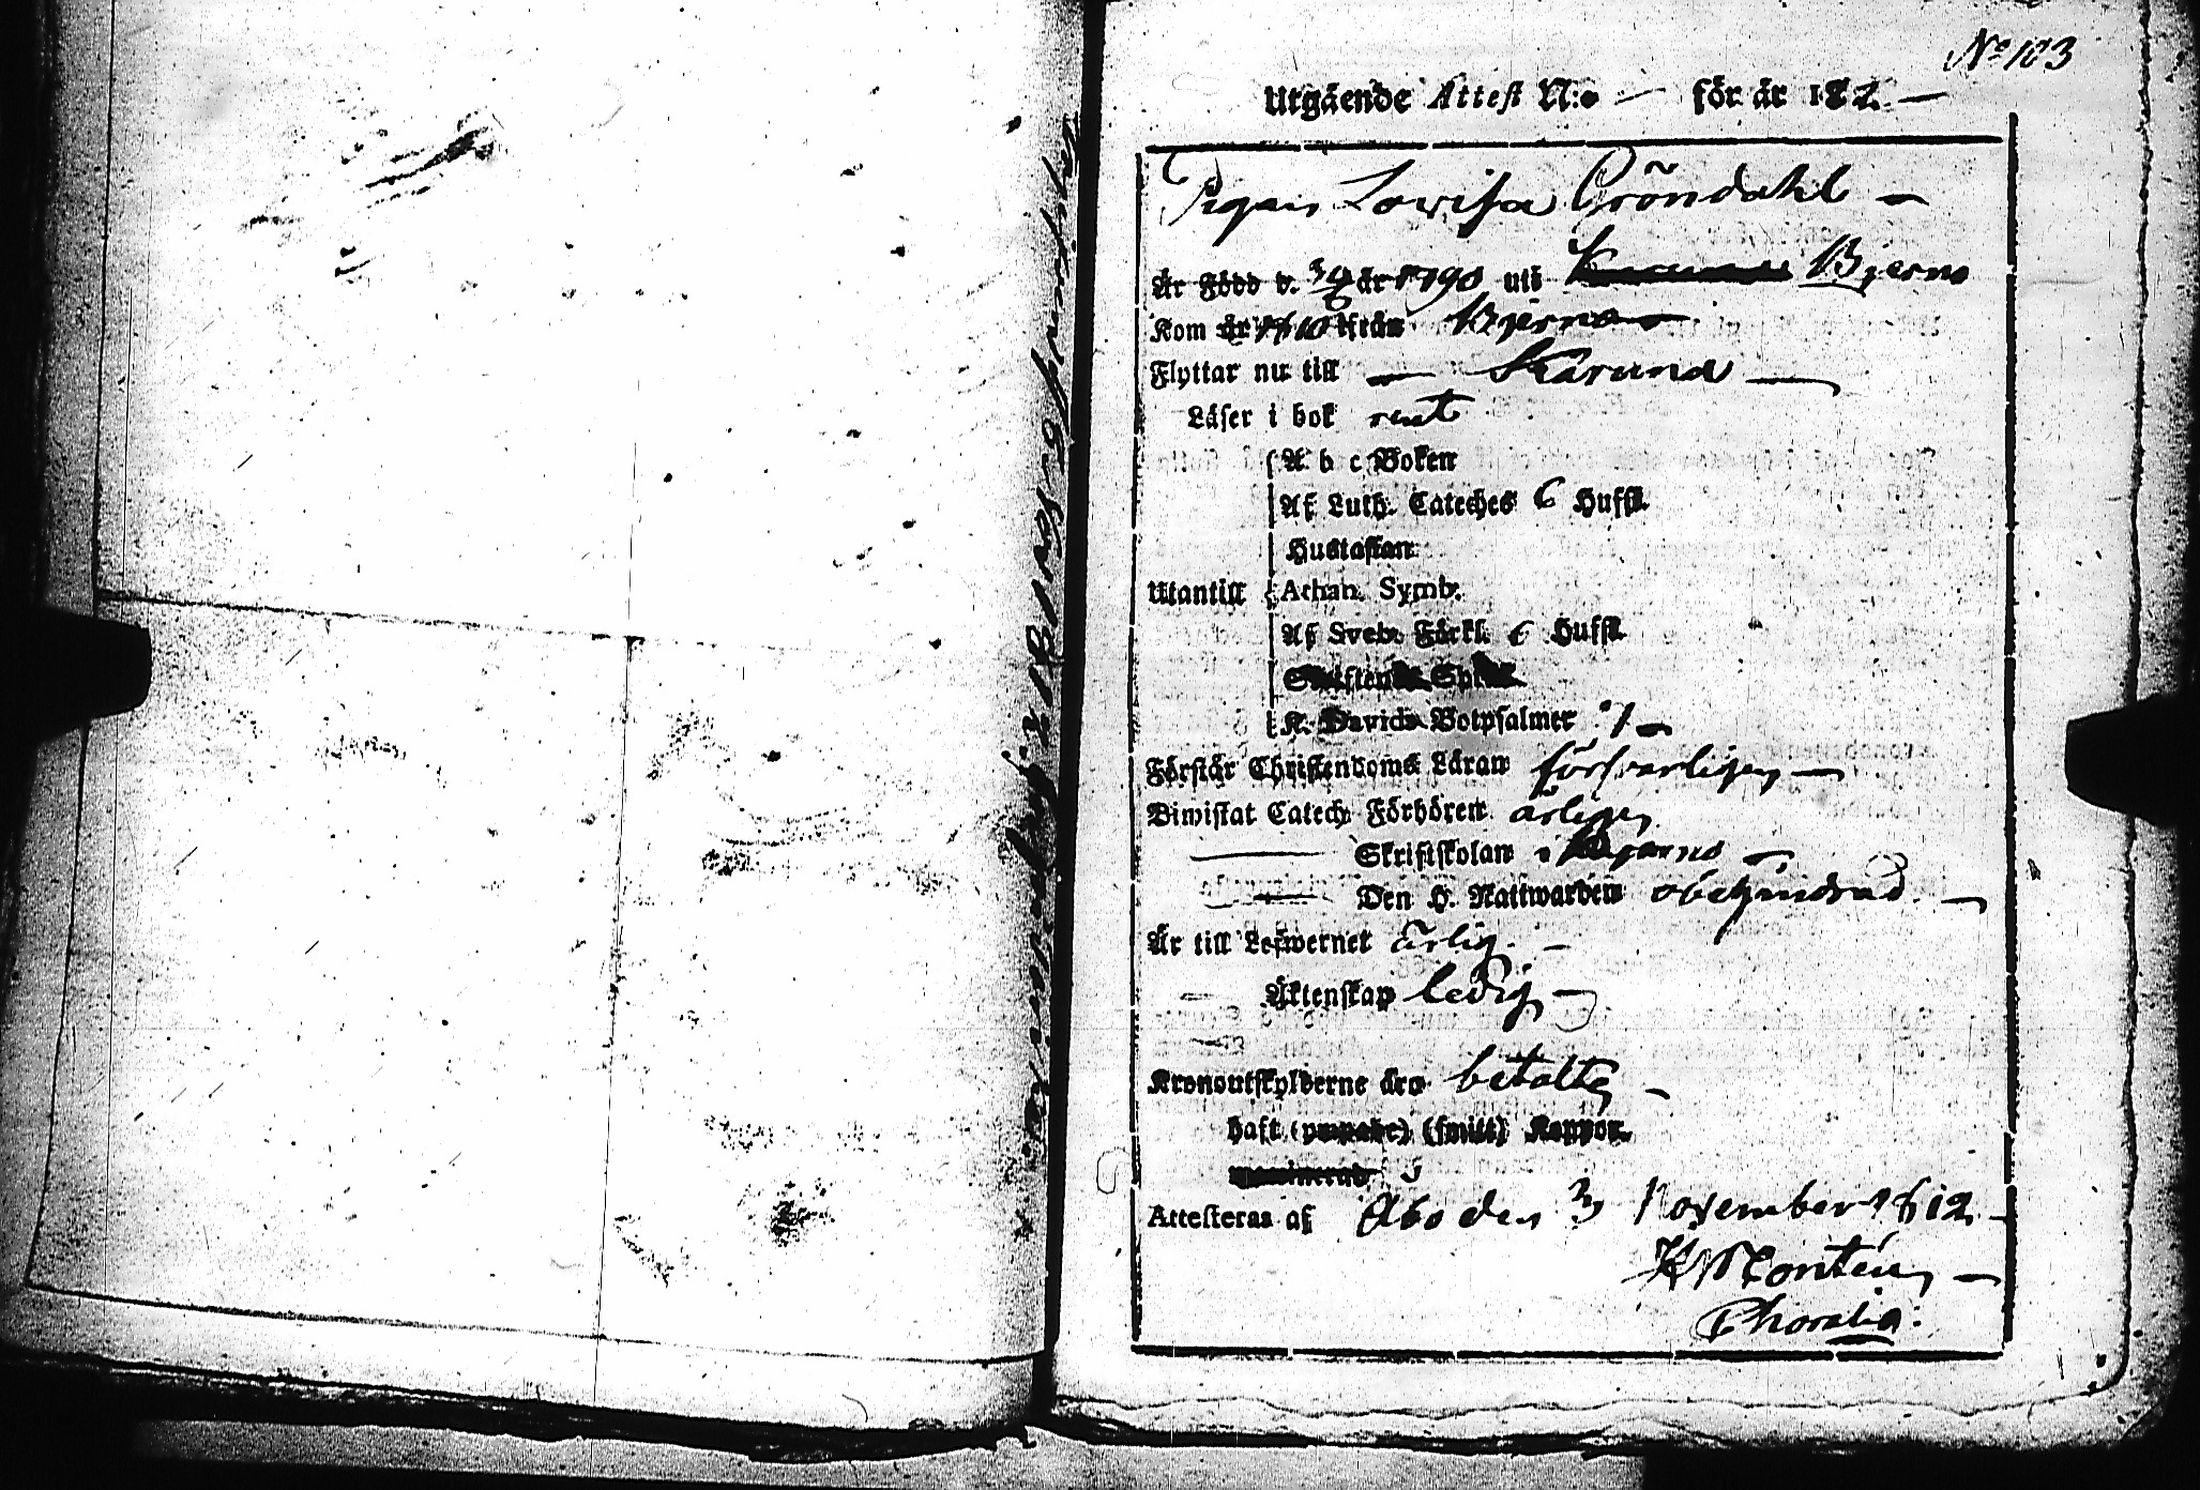 No 103
Utgående Attest N:o — för år 182 —
Pigan Lovisa Gröndahl —
Är Född d. 3/9 år 1790 uti Bjerno
Kom år 1810 från Bjerno
Flyttar nu till — Karuna —
Läser i bok rent
A b c Boken
Af Luth. Cateches 6 Hufst.
Hustaflan
Utantill Athan. Symb.
Af Sveb. Förkl. 6 Hufst.
K. Davids Botpsalmer 7 —
Förstår Christendoms Läran försvarligen —
Biwistat Catech. Förhören årligen
— Skriftskolan i Bjerno —
— Den H. Nattwarden obehindrad. —
Är till Lefwernet ärlig. —
— Äktenskap ledig —
Kronoutskylderne äro betalte —
haft (smitt) Koppor.
Attesteras af Åbo den 3 November 1812. —